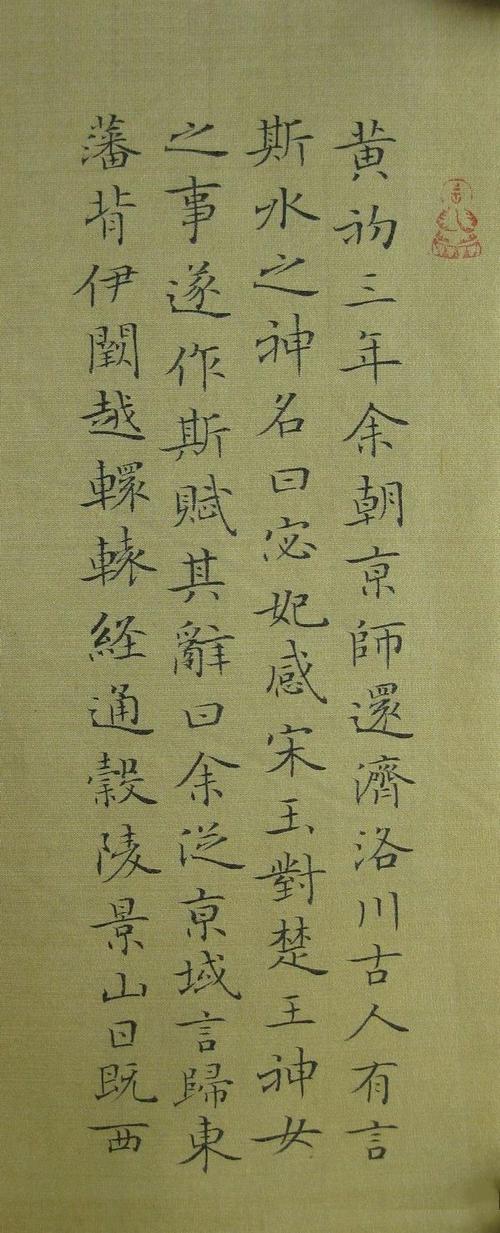 黄初三年余朝京師還濟洛川古人有言
斯水之神名曰宓妃感宋玉對楚王神女
之事遂作斯賦其辭曰余従京域言歸東
藩背伊闕越轘轅経通穀陵景山日既西